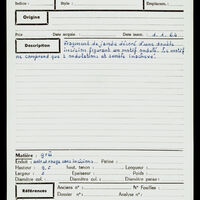 Indice : Style : Emplacem. :
Origine
Prix Date acquis Date inven. 1.1.64
Description Fragment de jambe décoré d'une double
incision figurant un motif ondulé. Le motif
ne comprend que 2 ondulations et semble inachevé.
Matière : grès
Enduit : Patine :
Hauteur : haut. talon : Longueur :
Largeur : 0 Epaisseur : Poids :
Diamètre col. : Diamètre panse :
Références Anciens n° : N° Fouilles :
Dossier n° : Analyse n° :